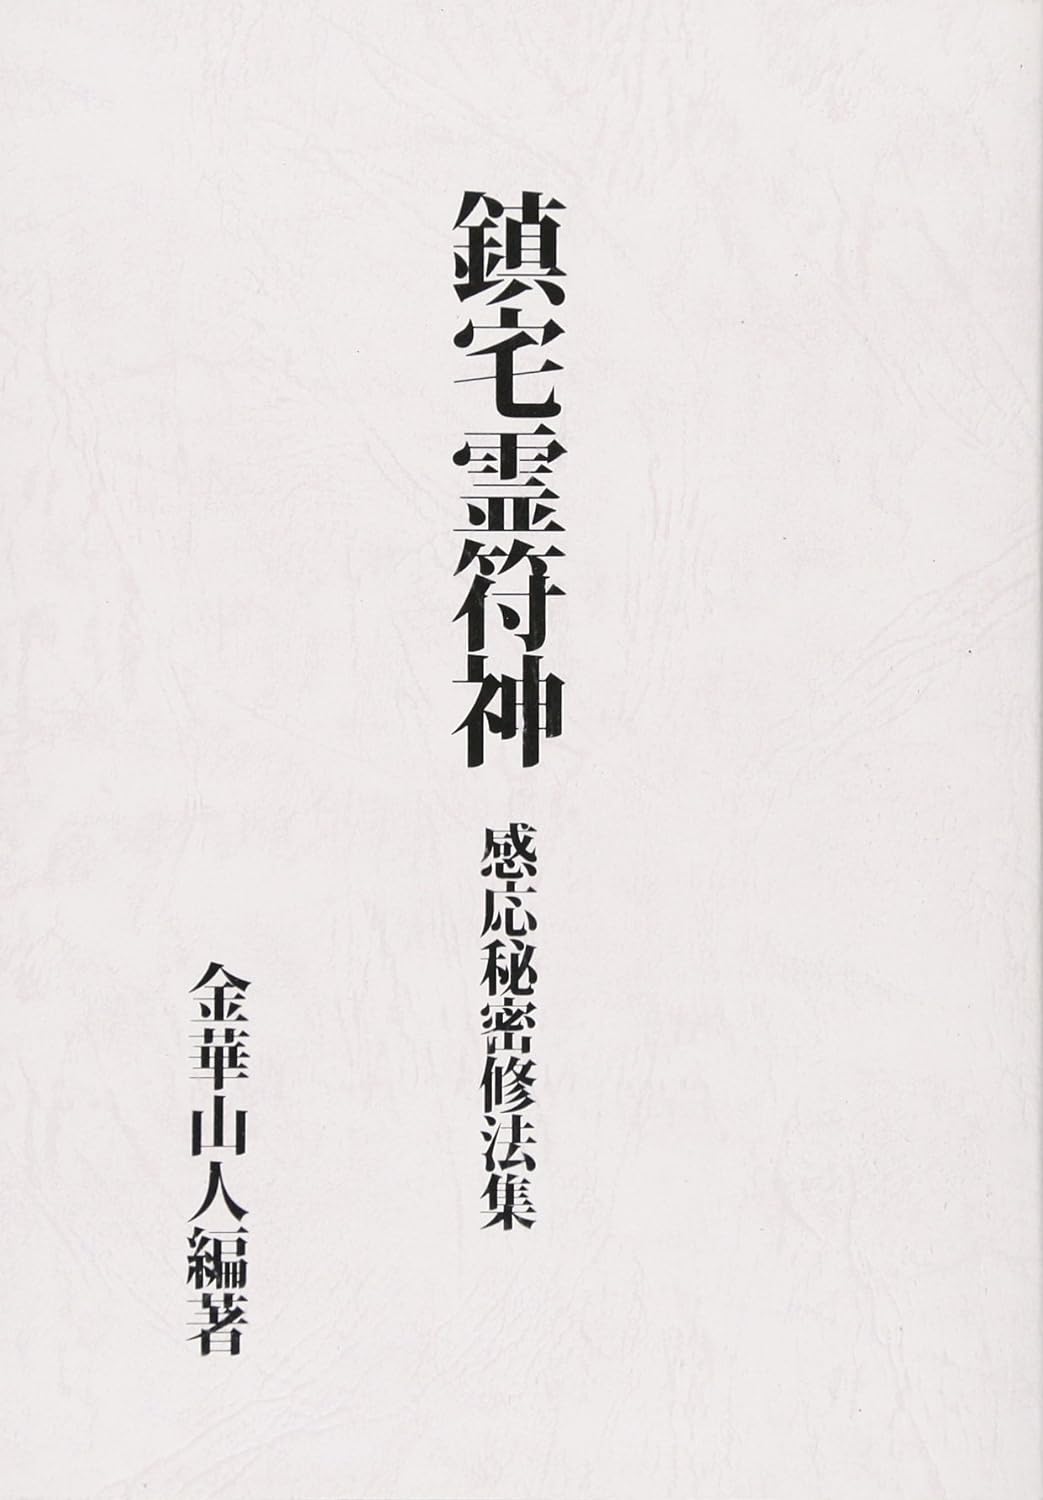 鎮宅霊符神
感応秘密修法集
金華山人編著